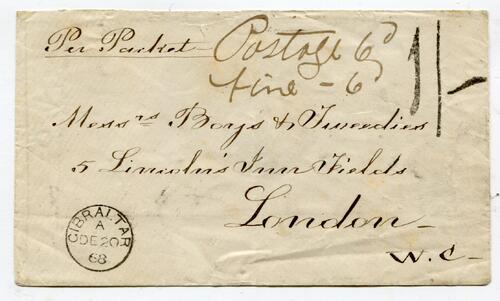 Per Packet
Postage 6d
fine - 6d
1/-
Messrs Boys & Tweedies
5 Lincoln's Inn Fields
London
W.C-
GIBRALTAR
A
DE 20
68